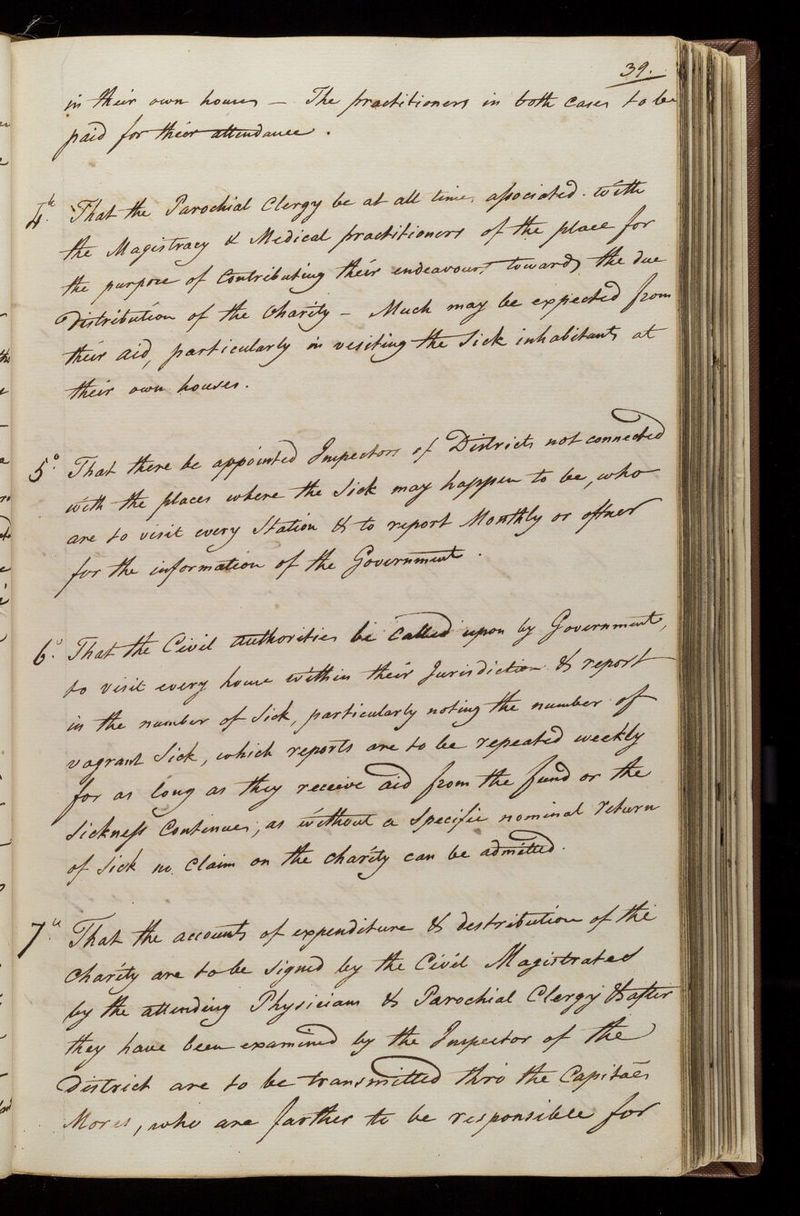 39.
in their own houses — The practitioners in both cases to be
paid for their attendance.
4th. That the Parochial Clergy be at all times associated with
the Magistracy & Medical practitioners of the place for
the purpose of Contributing their endeavours towards the due
Distribution of the Charity — Much may be expected from
their aid, particularly in visiting the Sick inhabitants at
their own houses.
5o. That there be appointed Inspectors of Districts not connected
with the places where the Sick may happen to be, who
are to visit every Station & to report Monthly or oftner
for the information of the Government.
6o. That the Civil authorities be called upon by Government,
to visit every house within their Jurisdiction & report
in the number of Sick, particularly noting the number of
vagrant Sick, which reports are to be repeated weekly
for as long as they receive aid from the fund or the
Sickness Continues, as without a Specific nominal return
of Sick no Claim on the charity can be admitted.
7th. That the accounts of expenditure & destribution of the
Charity are to be signed by the Civil Magistrates
by the attending Physicians & Parochial Clergy & after
they have been examined by the Inspector of the
District are to be transmitted thro the Capitaēs
Mores, who are farther to be responsible for